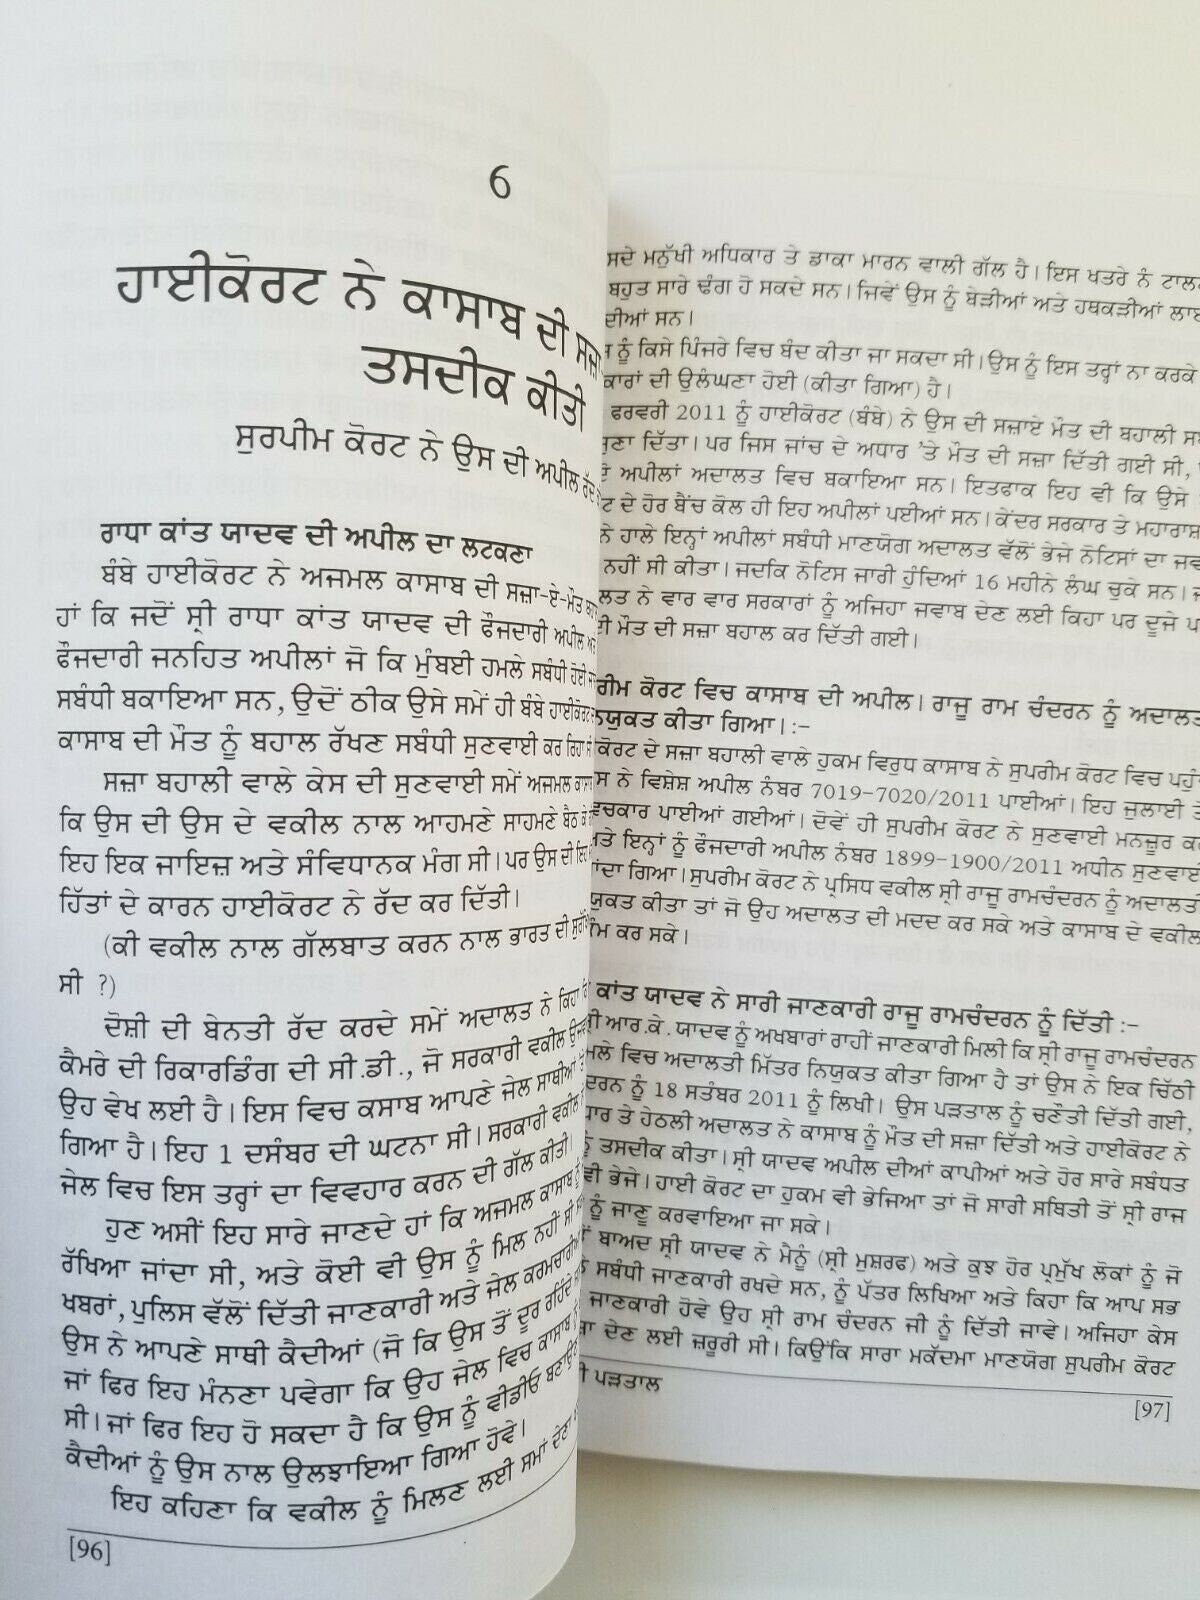 6
ਹਾਈਕੋਰਟ ਨੇ ਕਾਸਾਬ ਦੀ ਸਜ਼ਾ
ਤਸਦੀਕ ਕੀਤੀ
ਸੁਰਪੀਮ ਕੋਰਟ ਨੇ ਉਸ ਦੀ ਅਪੀਲ ਰੱਦ
ਰਾਧਾ ਕਾਂਤ ਯਾਦਵ ਦੀ ਅਪੀਲ ਦਾ ਲਟਕਣਾ
ਬੰਬੇ ਹਾਈਕੋਰਟ ਨੇ ਅਜਮਲ ਕਾਸਾਬ ਦੀ ਸਜ਼ਾ-ਏ-ਮੌਤ
ਹਾਂ ਕਿ ਜਦੋਂ ਸ੍ਰੀ ਰਾਧਾ ਕਾਂਤ ਯਾਦਵ ਦੀ ਫੌਜਦਾਰੀ ਅਪੀਲ ਅਤੇ
ਫੌਜਦਾਰੀ ਜਨਹਿਤ ਅਪੀਲਾਂ ਜੋ ਕਿ ਮੁੰਬਈ ਹਮਲੇ ਸਬੰਧੀ ਹੋਈ
ਸਬੰਧੀ ਬਕਾਇਆ ਸਨ, ਉਦੋਂ ਠੀਕ ਉਸੇ ਸਮੇਂ ਹੀ ਬੰਬੇ ਹਾਈਕੋਰਟ
ਕਾਸਾਬ ਦੀ ਮੌਤ ਨੂੰ ਬਹਾਲ ਰੱਖਣ ਸਬੰਧੀ ਸੁਣਵਾਈ ਕਰ ਰਿਹਾ ਸੀ
ਸਜ਼ਾ ਬਹਾਲੀ ਵਾਲੇ ਕੇਸ ਦੀ ਸੁਣਵਾਈ ਸਮੇਂ ਅਜਮਲ ਕਾਸਾਬ
ਕਿ ਉਸ ਦੀ ਉਸ ਦੇ ਵਕੀਲ ਨਾਲ ਆਹਮਣੇ ਸਾਹਮਣੇ ਬੈਠ ਕੇ
ਇਹ ਇਕ ਜਾਇਜ਼ ਅਤੇ ਸੰਵਿਧਾਨਕ ਮੰਗ ਸੀ। ਪਰ ਉਸ ਦੀ ਇਹ
ਹਿੱਤਾਂ ਦੇ ਕਾਰਨ ਹਾਈਕੋਰਟ ਨੇ ਰੱਦ ਕਰ ਦਿੱਤੀ।
(ਕੀ ਵਕੀਲ ਨਾਲ ਗੱਲਬਾਤ ਕਰਨ ਨਾਲ ਭਾਰਤ ਦੀ
ਸੀ ?)
ਦੋਸ਼ੀ ਦੀ ਬੇਨਤੀ ਰੱਦ ਕਰਦੇ ਸਮੇਂ ਅਦਾਲਤ ਨੇ ਕਿਹਾ
ਕੈਮਰੇ ਦੀ ਰਿਕਾਰਡਿੰਗ ਦੀ ਸੀ.ਡੀ., ਜੋ ਸਰਕਾਰੀ ਵਕੀਲ
ਉਹ ਵੇਖ ਲਈ ਹੈ। ਇਸ ਵਿਚ ਕਸਾਬ ਆਪਣੇ ਜੇਲ ਸਾਥੀਆਂ
ਗਿਆ ਹੈ। ਇਹ 1 ਦਸੰਬਰ ਦੀ ਘਟਨਾ ਸੀ। ਸਰਕਾਰੀ ਵਕੀਲ
ਜੇਲ ਵਿਚ ਇਸ ਤਰ੍ਹਾਂ ਦਾ ਵਿਵਹਾਰ ਕਰਨ ਦੀ ਗੱਲ ਕੀਤੀ।
ਹੁਣ ਅਸੀਂ ਇਹ ਸਾਰੇ ਜਾਣਦੇ ਹਾਂ ਕਿ ਅਜਮਲ ਕਾਸਾਬ ਨੂੰ
ਰੱਖਿਆ ਜਾਂਦਾ ਸੀ, ਅਤੇ ਕੋਈ ਵੀ ਉਸ ਨੂੰ ਮਿਲ ਨਹੀਂ ਸੀ
ਖਬਰਾਂ, ਪੁਲਿਸ ਵੱਲੋਂ ਦਿੱਤੀ ਜਾਣਕਾਰੀ ਅਤੇ ਜੇਲ ਕਰਮਚਾਰੀਆਂ
ਉਸ ਨੇ ਆਪਣੇ ਸਾਥੀ ਕੈਦੀਆਂ (ਜੋ ਕਿ ਉਸ ਤੋਂ ਦੂਰ ਰਹਿੰਦੇ
ਜਾਂ ਫਿਰ ਇਹ ਮੰਨਣਾ ਪਵੇਗਾ ਕਿ ਉਹ ਜੇਲ ਵਿਚ ਕਾਸਾਬ ਨੂੰ
ਸੀ। ਜਾਂ ਫਿਰ ਇਹ ਹੋ ਸਕਦਾ ਹੈ ਕਿ ਉਸ ਨੂੰ ਵੀਡੀਓ ਬਣਾਉਣ
ਕੈਦੀਆਂ ਨੂੰ ਉਸ ਨਾਲ ਉਲਝਾਇਆ ਗਿਆ ਹੋਵੇ।
ਇਹ ਕਹਿਣਾ ਕਿ ਵਕੀਲ ਨੂੰ ਮਿਲਣ ਲਈ ਸਮਾਂ ਦੇਣਾ
[96]
ਸਦੇ ਮਨੁੱਖੀ ਅਧਿਕਾਰ ਤੇ ਡਾਕਾ ਮਾਰਨ ਵਾਲੀ ਗੱਲ ਹੈ। ਇਸ ਖਤਰੇ ਨੰ ਟਾਲਣ
ਬਹੁਤ ਸਾਰੇ ਢੰਗ ਹੋ ਸਕਦੇ ਸਨ। ਜਿਵੇਂ ਉਸ ਨੂੰ ਬੇੜੀਆਂ ਅਤੇ ਹਥਕੜੀਆਂ ਲਾਈ
ਦੀਆਂ ਸਨ।
ਨੂੰ ਕਿਸੇ ਪਿੰਜਰੇ ਵਿਚ ਬੰਦ ਕੀਤਾ ਜਾ ਸਕਦਾ ਸੀ। ਉਸ ਨੂੰ ਇਸ ਤਰ੍ਹਾਂ ਨਾ ਕਰਕੇ
ਕਾਰਾਂ ਦੀ ਉਲੰਘਣਾ ਹੋਈ (ਕੀਤਾ ਗਿਆ) ਹੈ।
ਫਰਵਰੀ 2011 ਨੂੰ ਹਾਈਕੋਰਟ (ਬੰਬੇ) ਨੇ ਉਸ ਦੀ ਸਜ਼ਾਏ ਮੌਤ ਦੀ ਬਹਾਲੀ
ਸੁਣਾ ਦਿੱਤਾ। ਪਰ ਜਿਸ ਜਾਂਚ ਦੇ ਅਧਾਰ 'ਤੇ ਮੌਤ ਦੀ ਸਜ਼ਾ ਦਿੱਤੀ ਗਈ ਸੀ,
ਅਪੀਲਾਂ ਅਦਾਲਤ ਵਿਚ ਬਕਾਇਆ ਸਨ। ਇਤਫਾਕ ਇਹ ਵੀ ਕਿ ਉਸੇ
ਟ ਦੇ ਹੋਰ ਬੈਂਚ ਕੋਲ ਹੀ ਇਹ ਅਪੀਲਾਂ ਪਈਆਂ ਸਨ। ਕੇਂਦਰ ਸਰਕਾਰ ਤੇ ਮਹਾਰਾਸ਼
ਨੇ ਹਾਲੇ ਇਨ੍ਹਾਂ ਅਪੀਲਾਂ ਸਬੰਧੀ ਮਾਣਯੋਗ ਅਦਾਲਤ ਵੱਲੋਂ ਭੇਜੇ ਨੋਟਿਸਾਂ ਦਾ ਜਵ
ਨਹੀਂ ਸੀ ਕੀਤਾ। ਜਦਕਿ ਨੋਟਿਸ ਜਾਰੀ ਹੁੰਦਿਆਂ 16 ਮਹੀਨੇ ਲੰਘ ਚੁਕੇ ਸਨ।
ਲਤ ਨੇ ਵਾਰ ਵਾਰ ਸਰਕਾਰਾਂ ਨੂੰ ਅਜਿਹਾ ਜਵਾਬ ਦੇਣ ਲਈ ਕਿਹਾ ਪਰ ਦੂਜੇ ਪ
ਮੌਤ ਦੀ ਸਜ਼ਾ ਬਹਾਲ ਕਰ ਦਿੱਤੀ ਗਈ।
ਰੀਮ ਕੋਰਟ ਵਿਚ ਕਾਸਾਬ ਦੀ ਅਪੀਲ। ਰਾਜੂ ਰਾਮ ਚੰਦਰਨ ਨੂੰ ਅਦਾਲਤ
ਨਿਯੁਕਤ ਕੀਤਾ ਗਿਆ। :-
ਕੋਰਟ ਦੇ ਸਜ਼ਾ ਬਹਾਲੀ ਵਾਲੇ ਹੁਕਮ ਵਿਰੁਧ ਕਾਸਾਬ ਨੇ ਸੁਪਰੀਮ ਕੋਰਟ ਵਿਚ ਪਹੁੰ
ਸ ਨੇ ਵਿਸ਼ੇਸ਼ ਅਪੀਲ ਨੰਬਰ 7019-7020/2011 ਪਾਈਆਂ। ਇਹ ਜੁਲਾਈ ਤੋਂ
ਵਿਚਕਾਰ ਪਾਈਆਂ ਗਈਆਂ। ਦੋਵੇਂ ਹੀ ਸੁਪਰੀਮ ਕੋਰਟ ਨੇ ਸੁਣਵਾਈ ਮਨਜ਼ੂਰ ਕਰ
ਅਤੇ ਇਨ੍ਹਾਂ ਨੂੰ ਫੌਜਦਾਰੀ ਅਪੀਲ ਨੰਬਰ 1899-1900/2011 ਅਧੀਨ ਸੁਣਵਾਈ
ਾਂਦਾ ਗਿਆ। ਸੁਪਰੀਮ ਕੋਰਟ ਨੇ ਪ੍ਰਸਿਧ ਵਕੀਲ ਸ਼੍ਰੀ ਰਾਜੂ ਰਾਮਚੰਦਰਨ ਨੂੰ ਅਦਾਲਤੀ
ਯੁਕਤ ਕੀਤਾ ਤਾਂ ਜੋ ਉਹ ਅਦਾਲਤ ਦੀ ਮਦਦ ਕਰ ਸਕੇ ਅਤੇ ਕਾਸਾਬ ਦੇ ਵਕੀਲ
ੰਮ ਕਰ ਸਕੇ।
ਕਾਂਤ ਯਾਦਵ ਨੇ ਸਾਰੀ ਜਾਣਕਾਰੀ ਰਾਜੂ ਰਾਮਚੰਦਰਨ ਨੂੰ ਦਿੱਤੀ :-
ਆਰ.ਕੇ. ਯਾਦਵ ਨੂੰ ਅਖਬਾਰਾਂ ਰਾਹੀਂ ਜਾਣਕਾਰੀ ਮਿਲੀ ਕਿ ਸ੍ਰੀ ਰਾਜੂ ਰਾਮਚੰਦਰਨ
ਮਲੇ ਵਿਚ ਅਦਾਲਤੀ ਮਿੱਤਰ ਨਿਯੁਕਤ ਕੀਤਾ ਗਿਆ ਹੈ ਤਾਂ ਉਸ ਨੇ ਇਕ ਚਿੱਠੀ
ਦਰਨ ਨੂੰ 18 ਸਤੰਬਰ 2011 ਨੂੰ ਲਿਖੀ। ਉਸ ਪੜਤਾਲ ਨੂੰ ਚਣੌਤੀ ਦਿੱਤੀ ਗਈ,
ਹਾਰ ਤੇ ਹੇਠਲੀ ਅਦਾਲਤ ਨੇ ਕਾਸਾਬ ਨੂੰ ਮੌਤ ਦੀ ਸਜ਼ਾ ਦਿੱਤੀ ਅਤੇ ਹਾਈਕੋਰਟ ਨੇ
ਨੂੰ ਤਸਦੀਕ ਕੀਤਾ। ਸ੍ਰੀ ਯਾਦਵ ਅਪੀਲ ਦੀਆਂ ਕਾਪੀਆਂ ਅਤੇ ਹੋਰ ਸਾਰੇ ਸਬੰਧਤ
ਵੀ ਭੇਜੇ। ਹਾਈ ਕੋਰਟ ਦਾ ਹੁਕਮ ਵੀ ਭੇਜਿਆ ਤਾਂ ਜੋ ਸਾਰੀ ਸਥਿਤੀ ਤੋਂ ਸ੍ਰੀ ਰਾਜ
ਨੂੰ ਜਾਣੂ ਕਰਵਾਇਆ ਜਾ ਸਕੇ।
ਬਾਅਦ ਸ੍ਰੀ ਯਾਦਵ ਨੇ ਮੈਨੂੰ (ਸ੍ਰੀ ਮੁਸ਼ਰਫ) ਅਤੇ ਕੁਝ ਹੋਰ ਪ੍ਰਮੁੱਖ ਲੋਕਾਂ ਨੂੰ ਜੋ
ਸਬੰਧੀ ਜਾਣਕਾਰੀ ਰਖਦੇ ਸਨ, ਨੂੰ ਪੱਤਰ ਲਿਖਿਆ ਅਤੇ ਕਿਹਾ ਕਿ ਆਪ ਸਭ
ਜਾਣਕਾਰੀ ਹੋਵੇ ਉਹ ਸ੍ਰੀ ਰਾਮ ਚੰਦਰਨ ਜੀ ਨੂੰ ਦਿੱਤੀ ਜਾਵੇ। ਅਜਿਹਾ ਕੇਸ
ਦੇਣ ਲਈ ਜ਼ਰੂਰੀ ਸੀ। ਕਿਉਂਕਿ ਸਾਰਾ ਮਕੱਦਮਾ ਮਾਣਯੋਗ ਸੁਪਰੀਮ ਕੋਰਟ
ਪੜਤਾਲ
[97]